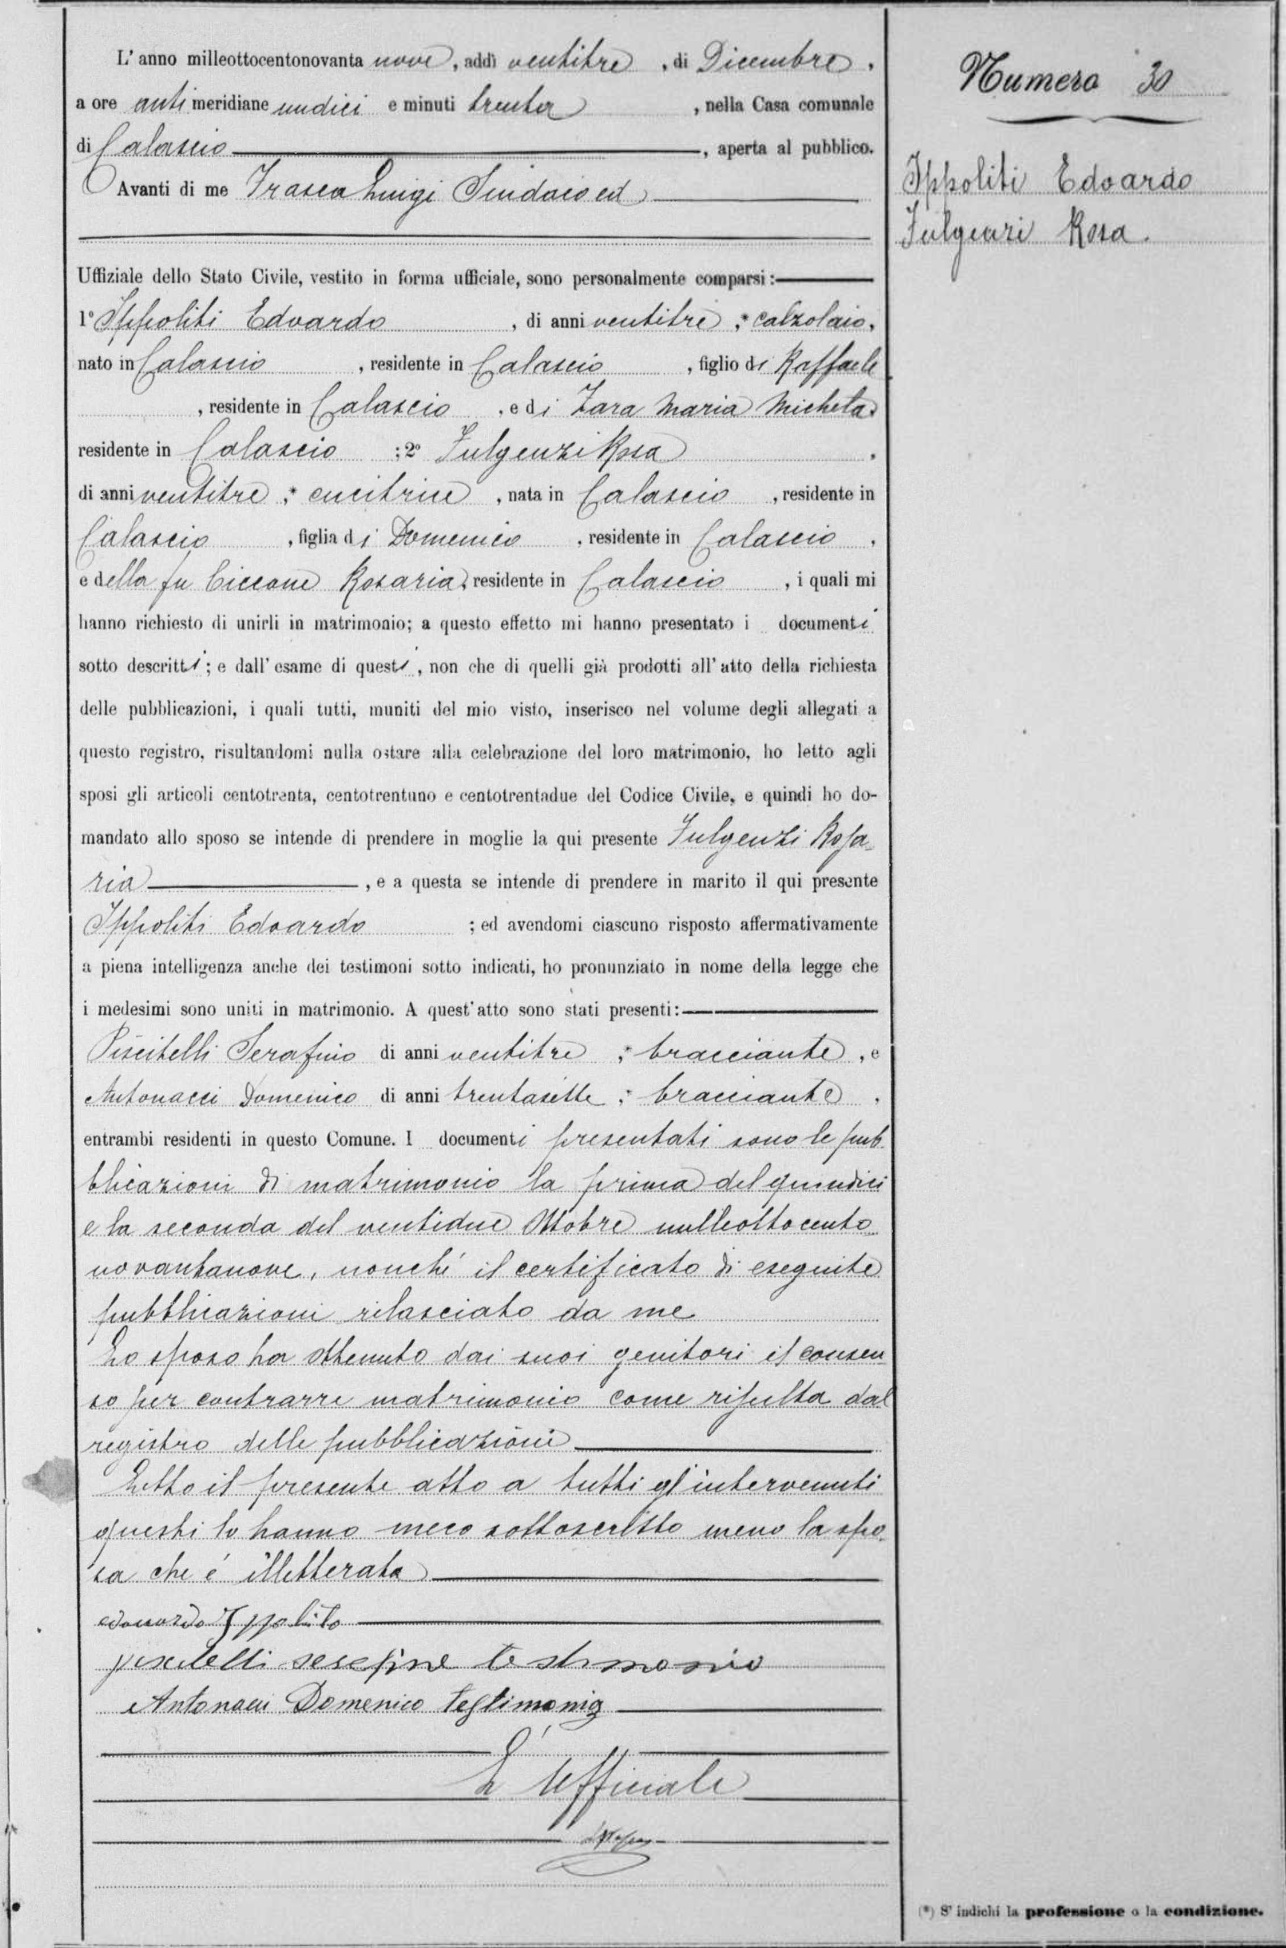 L' anno milleottocentonovanta nove, addì ventitre, di Dicembre,
a ore anti meridiane undici e minuti trenta, nella Casa comunale
di Calascio, aperta al pubblico.
Avanti di me Frasca Luigi Sindaco ed
Uffiziale dello Stato Civile, vestito in forma ufficiale, sono personalmente comparsi:
1° Ippoliti Edoardo, di anni ventitre, * calzolaio,
nato in Calascio, residente in Calascio, figlio di Raffaele
, residente in Calascio, e di Zara Maria Michela,
residente in Calascio; 2° Fulgenzi Rosa,
di anni ventitre, * cucitrice, nata in Calascio, residente in
Calascio, figlia di Domenico, residente in Calascio,
e della fu Ciccone Rosaria, residente in Calascio, i quali mi
hanno richiesto di unirli in matrimonio; a questo effetto mi hanno presentato i documenti
sotto descritti; e dall' esame di questi, non che di quelli già prodotti all' atto della richiesta
delle pubblicazioni, i quali tutti, muniti del mio visto, inserisco nel volume degli allegati a
questo registro, risultandomi nulla ostare alla celebrazione del loro matrimonio, ho letto agli
sposi gli articoli centotrenta, centotrentuno e centotrentadue del Codice Civile, e quindi ho do-
mandato allo sposo se intende di prendere in moglie la qui presente Fulgenzi Rosa-
ria, e a questa se intende di prendere in marito il qui presente
Ippoliti Edoardo; ed avendomi ciascuno risposto affermativamente
a piena intelligenza anche dei testimoni sotto indicati, ho pronunziato in nome della legge che
i medesimi sono uniti in matrimonio. A quest' atto sono stati presenti:
Piscitelli Serafino di anni ventitre, * bracciante, e
Antonacci Domenico di anni trentasette, * bracciante,
entrambi residenti in questo Comune. I documenti presentati sono le pub-
blicazioni di matrimonio la prima del quindici
e la seconda del ventidue Ottobre milleottocento
novantanove, nonché il certificato di eseguite
pubblicazioni rilasciato da me
Lo sposo ha ottenuto dai suoi genitori il consen
so per contrarre matrimonio come risulta dal
registro delle pubblicazioni
Letto il presente atto a tutti gl'intervenuti
questi lo hanno meco sottoscritto meno la spo-
sa che é illetterata
edouardo Ippolito
piscitelli serefine testimonio
Antonacci Domenico testimonio
L' Ufficiale
Numero 30
Ippoliti Edoardo
Fulgenzi Rosa.
(*) S' indichi la professione o la condizione.